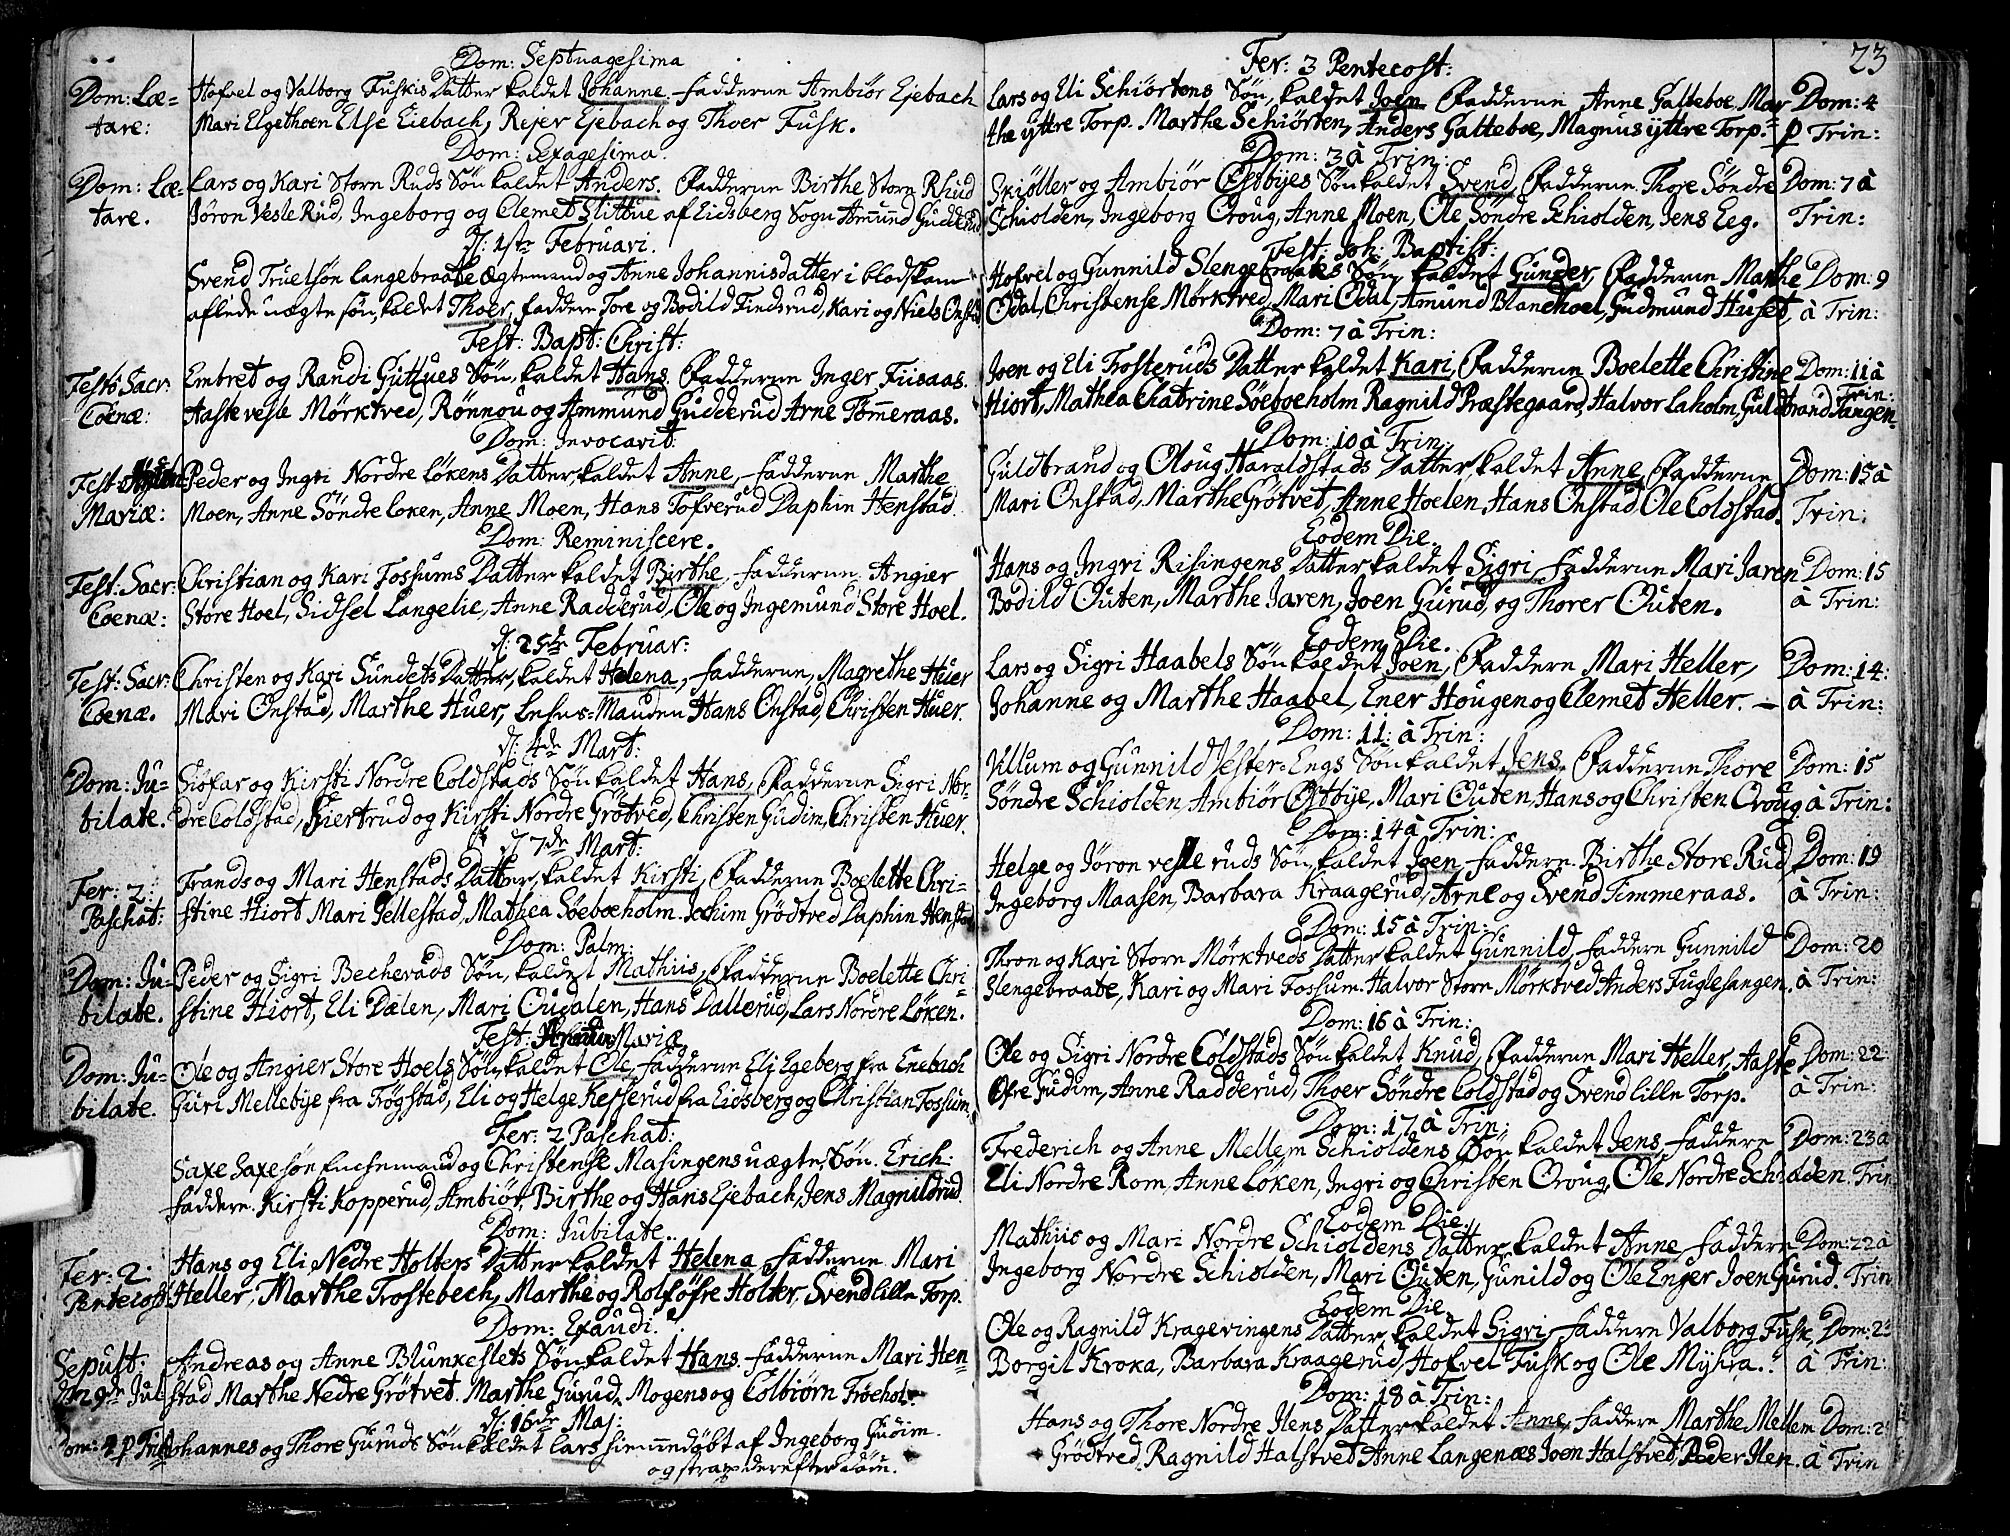 Dom: Septuagesima
Dom: Læ- Hofvel og Valborg Fuskis Datter kaldet Johanne. Fadderne Ambiör Ejebach
tare: Mari Elgethoen Else Eiebach, Rejer Ejebach og Thoer Fusk.
Dom: Sexagesima.
Dom: Læ- Lars og Kari Storn Ruds Sön kaldet Anders. Fadderne Birthe Storn Rhud
tare. Jöron Vesle Rud, Ingeborg og Clemet Slittue af Eidsberg Sogn Ammund Gudderud
d: 1ste Februari.
Svend Truelsön Langebraate Ægtemand og Anne Johannisdatter i blodskam
aflede uægte sön, kaldet Thoer, faddere Tore og Bodild Findsrud, Kari og Niels Onstad
Fest: Bapt: Christ:
Fest: Sacr: Embret og Randi Guttues Sön, kaldet Hans. Fadderne Inger Fiisaas.
Coenæ: Aaste vesle Mörktved, Rönnou og Ammund Gudderud Arne Tömmeraas.
Dom: Invocavit
Fest: Peder og Ingri Nordre Lökens Datter, kaldet Anne, fadderne Marthe
Mariæ: Moen, Anne Söndre Löken, Anne Moen, Hans Tofverud Daphin Henstad.
Dom: Reminiscere.
Fest: Sacr: Christian og Kari Fossums Datter kaldet Birthe, fadderne, Angier
Coenæ: Store Hoel, Sidsel Langelie, Anne Radderud, Ole og Ingemund Store Hoel.
d: 25de Februar:
Fest: Sacr: Christen og Kari Sundets Datter, kaldet Helena, fadderne, Magrethe Huer
Coenæ. Mari Onstad, Marthe Huer, Lehns-Manden Hans Onstad, Christen Huer.
d: 4de Mart:
Dom: Ju- Siofar og Kirsti Nordre Coldstads Sön kaldet Hans, Fadderne Sigri Nor-
bilate. dre Coldstad, Giertrud og Kirsti Nordre Grötved, Christen Gudim, Christen Huer.
d: 7de Mart:
Fer: 2: Frands og Mari Henstads Datter, kaldet Kirsti, Fadderne Boelette Chri-
Paschat: stine Hiort Mari Jellestad, Mathea Söeboeholm. Jochim Grödtved Daphin Henstad
Dom: Palm:
Dom: Ju- Peder og Sigri Becheraads Sön, kaldet Mathiis, Fadderne Boelette Chri-
bilate. stine Hiort, Eli Dælen, Mari Oudalen, Hans Dallerud, Lars Nordre Löken.
Fest: Mariæ
Dom: Ju- Ole og Angier Store Hoels Sön, kaldet Ole, fadderne Eli Egeberg fra Enebach
bilate. Guri Mellebye fra Trögstad, Eli og Helge Kefserud fra Eidsberg og Christian Fossum.
Fer: 2 Paschat:
Saxe Saxesön Enchemand og Christense Masingens uægte Sön. Erich:
faddere. Kirsti Kopperud, Ambiör, Birthe og Hans Ejebach, Jens Magnildrud
Dom: Jubilate.
Fer: 2. Hans og Eli Nedre Holters Datter kaldet Helena. Fadderne Mari
Pentecost. Heller, Marthe Trostebech, Marthe og Rolf öfre Holter, Svend lille Torp.
Dom: Exaudi.
Sepult: Andreas og Anne Blunkeslets Sön kaldet Hans. Fadderne Mari Hen-
Den 9de Jul: stad Marthe Nedre Grötvet. Marthe Gurud, Mogens og Colbiörn Fröehol.
d: 16de Maj:
Dom: 4 p Trin: Johannes og Thore Guruds Sön kaldet Lars hiemmedöbt af Ingeborg Gudim.
og strax derefter döde.
23
Fer: 3 Pentecost:
Lars og Eli Schiörtens Sön, kaldet Joen. Fadderne Anne Galteboe, Mar- Dom: 4
the yttre Torp. Marthe Schiörten, Anders Galteboe, Magnus yttre Torp. p Trin:
Dom: 3 à Trin:
Skiöller og Ambiör Östbÿes Sön kaldet Svend, Fadderne. Thore Söndre Dom: 7 à
Schiolden, Ingeborg Croug, Anne Moen, Ole Söndre Schiolden, Jens Eeg. Trin:
Fest: Joh: Baptist:
Hofvel og Gunnild Slengebraates Sön, kaldet Gunder, Fadderne Marthe Dom: 9
Odal, Christense Mörktved, Mari Odal, Amund Blanchoel, Gudmund Huset, à Trin:
Dom: 7 à Trin:
Joen og Eli Trosteruds Datter kaldet Kari, Fadderne Boelette Christine Dom: 11 à
Hiort, Mathea Chatrine Söeboeholm Ragnild Præstegaard, Halvor Laholm, Guldbrand Tangen. Trin:
Dom: 10 à Trin:
Guldbrand og Oloug Haraldstads Datter kaldet Anne, Fadderne Dom: 15 à
Mari Onstad, Marthe Grötvet, Anne Hoelen, Hans Onstad, Ole Coldstad. Trin:
Eodem Die.
Hans og Ingri Risingens Datter kaldet Sigri, Fadderne Mari Jaren Dom: 15
Bodild Outen, Marthe Jaren, Joen Gurud, og Thorer Outen. à Trin:
Eodem Die.
Lars og Sigri Haabels Sön kaldet Joen, Faddern Mari Heller, Dom: 14:
Johanne og Marthe Haabel, Ener Hougen og Clemet Heller. — à Trin:
Dom: 11: à Trin:
Villum og Gunnild Vester-Engs Sön kaldet Jens. Fadderne Thore Dom: 15
Söndre Schiolden, Ambiör Östbÿe, Mari Outen, Hans og Christen Croug. à Trin:
Dom: 14 à Trin:
Helge og Jöron vesle ruds Sön kaldet Joen faddern. Birthe Store Rud, Dom: 19
Ingeborg Maasen, Barbara Kraagerud, Arne og Svend Timmeraas. à Trin:
Dom: 15 à Trin:
Thron og Kari Storn Mörktveds Datter kaldet Gunnild, faddern Gunnild Dom: 20
Slengebraate, Kari og Mari Fossum. Halvor Storn Mörktved Anders Fuglesangen. à Trin:
Dom: 16 à Trin:
Ole og Sigri Nordre Coldstads Sön kaldet Knud, Fadderne Mari Heller, Aaste Dom: 22
Öfre Gudim, Anne Radderud, Thoer Söndre Coldstad og Svend lille Torp. à Trin:
Dom: 17 à Trin:
Frederich og Anne Mellem Schioldens Sön kaldet Jens, faddere Dom: 23 à
Eli Nordre Rom, Anne Löken, Ingri og Christen Croug, Ole Nordre Schiolden. Trin
Eodem Die.
Mathiis og Mari Nordre Schioldens Datter, kaldet Anne, faddere Dom: 22 à
Ingeborg Nordre Schiolden, Mari Outen, Gunild og Ole Enger Joen Gurud. Trin
Eodem Die.
Ole og Ragnild Kragevingens Datter kaldet Sigri, faddere Valborg Fusk, Dom: 2
Borgil Kroka, Barbara Kraagerud, Hofvel Fusk og Ole Mÿhra. à Trin:
Dom: 18 à Trin:
Hans og Thore Nordre Ilens Datter kaldet Anne, faddere Marthe Mellem Dom: 2
Grödtved, Ragnild Halstvet Anne Langenæs Joen Halstvet, Peder Ilen. à Trin